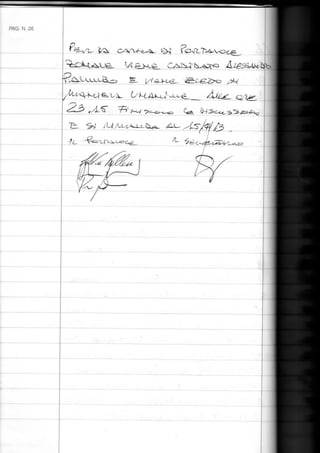 PAG. N. 26
PER LA CARICA DI PORTAVOCE
ZONALE VIENE CANDIDATO ALESSANDRO
E VIENE ELETTO IN
MANIERA UNANIME. ALLE ORE
23,15 FINISCONO LE DISCUSSIONI
E SI RIMANDA AL 15/7/13.
IL PORTAVOCE IL SEGRETARIO